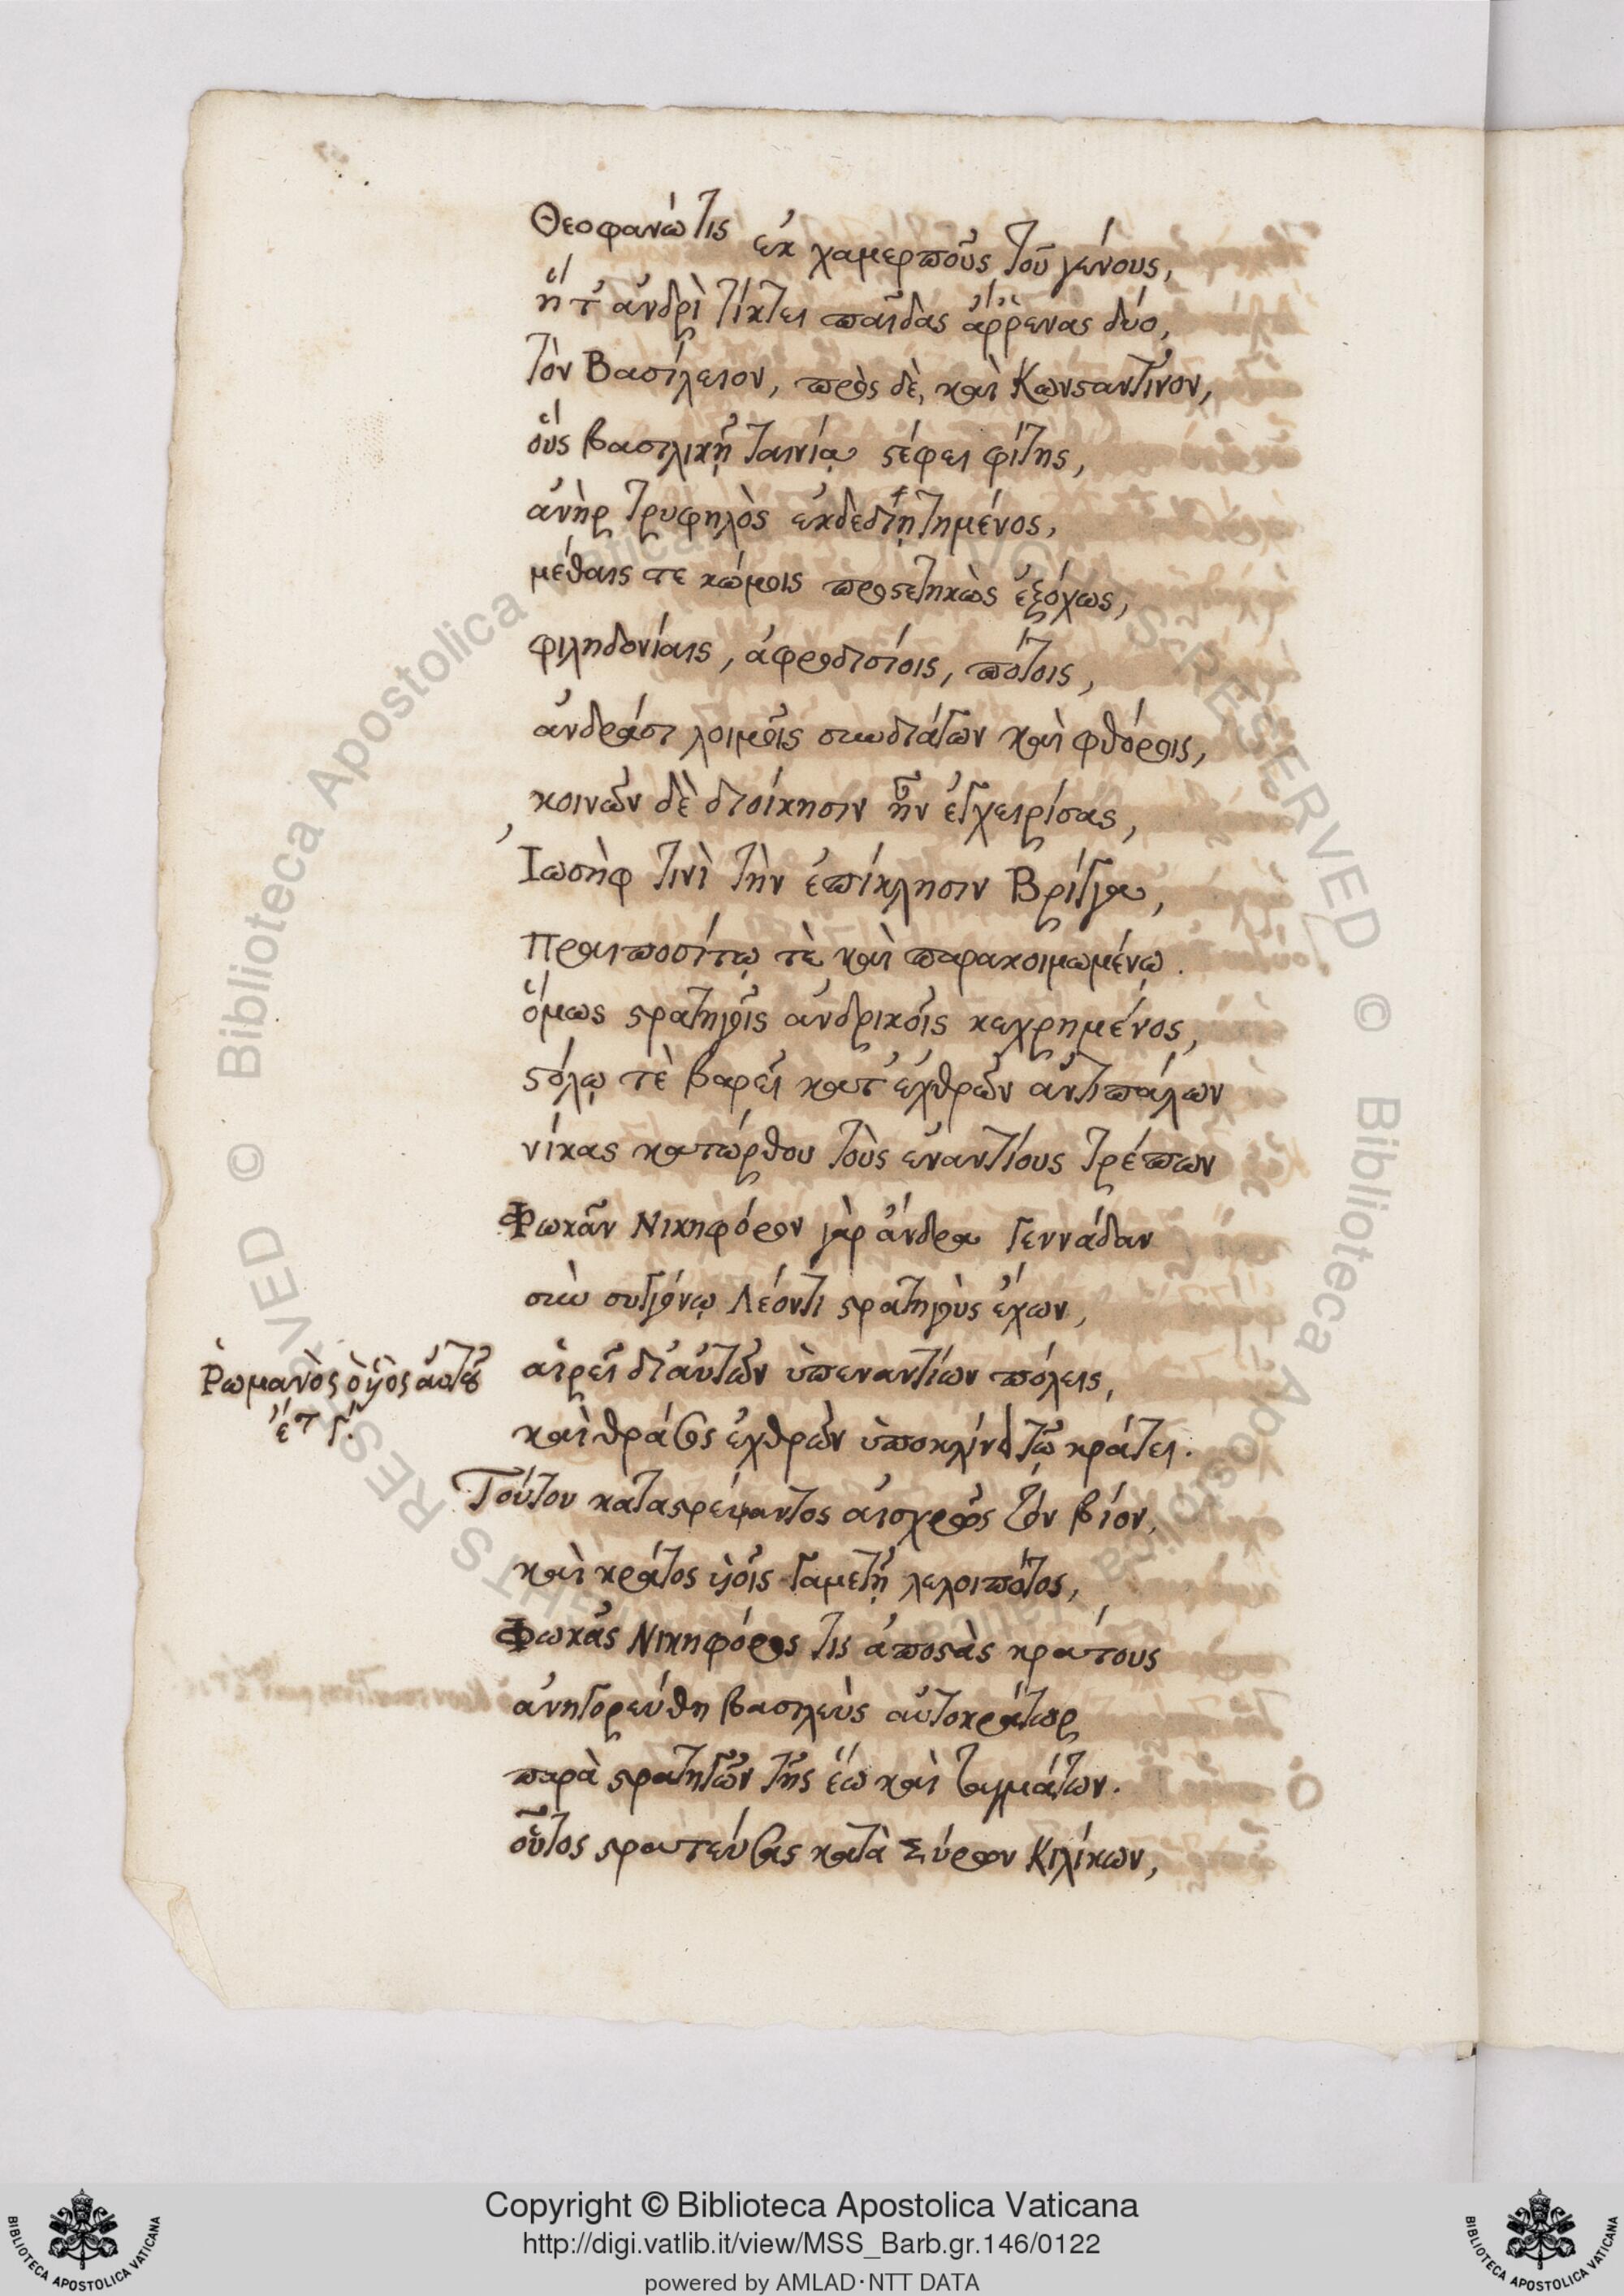 Θεοφανώ τις ἐκ χαμερποῦς τοῦ γένους,
ἥ τ' ἀνδρὶ τίκτει παῖδας ἄῤῥενας δύο,
τὸν Βασίλειον, πρὸς δὲ, καὶ Κωνσαντῖνον,
οὓς βασιλικῇ ταινίᾳ στέφει φίτης,
ἀνὴρ τρυφηλὸς ἐκδεδιῃτημένος,
μέθαις τε κώμοις προστετηκὼς ἐξόχως,
φιληδονίαις, ἀφροδισίοις, πότοις,
ἀνδράσι λοιμοῖς συνδιάγων καὶ φθόροις,
κοινῶν δὲ διοίκησιν ἦν ἐγχειρίσας,
Ἰωσὴφ τινὶ τὴν ἐπίκλησιν Βρίγγα,
Πραιποσίτῳ τὲ καὶ παρακοιμωμένῳ.
ὅμως στρατηγοῖς ἀνδρικοῖς κεχρημένος,
στόλῳ τὲ βαρεῖ κατ' ἐχθρῶν ἀντιπάλων
νίκας κατώρθου τοὺς ἐναντίους τρέπων
Φωκᾶν Νικηφόρον γὰρ ἄνδρα γεννάδαν
σὺν συγγόνῳ Λέοντι στρατηγοὺς ἔχων,
αἱρεῖ δι' αὐτῶν ὑπεναντίων πόλεις,
Ῥωμανὸς ὁ υἱὸς αὐτοῦ
ἔτ γ'.
καὶ θράσος ἐχθρῶν ὑποκλίνει τῷ κράτει.
Τούτου καταστρέψαντος αἰσχρῶς τὸν βίον,
καὶ κράτος υἱοῖς γαμετῇ λελοιπότος,
Φωκᾶς Νικηφόρος τις ἀποστὰς κράτους
ἀνηγορεύθη βασιλεὺς αὐτοκράτωρ
παρὰ στρατηγῶν τῆς ἕω καὶ ταγμάτων.
οὗτος στρατεύσας κατὰ Σύρων Κιλίκων,
Copyright © Biblioteca Apostolica Vaticana
http://digi.vatlib.it/view/MSS_Barb.gr.146/0122
powered by AMLAD·NTT DATA